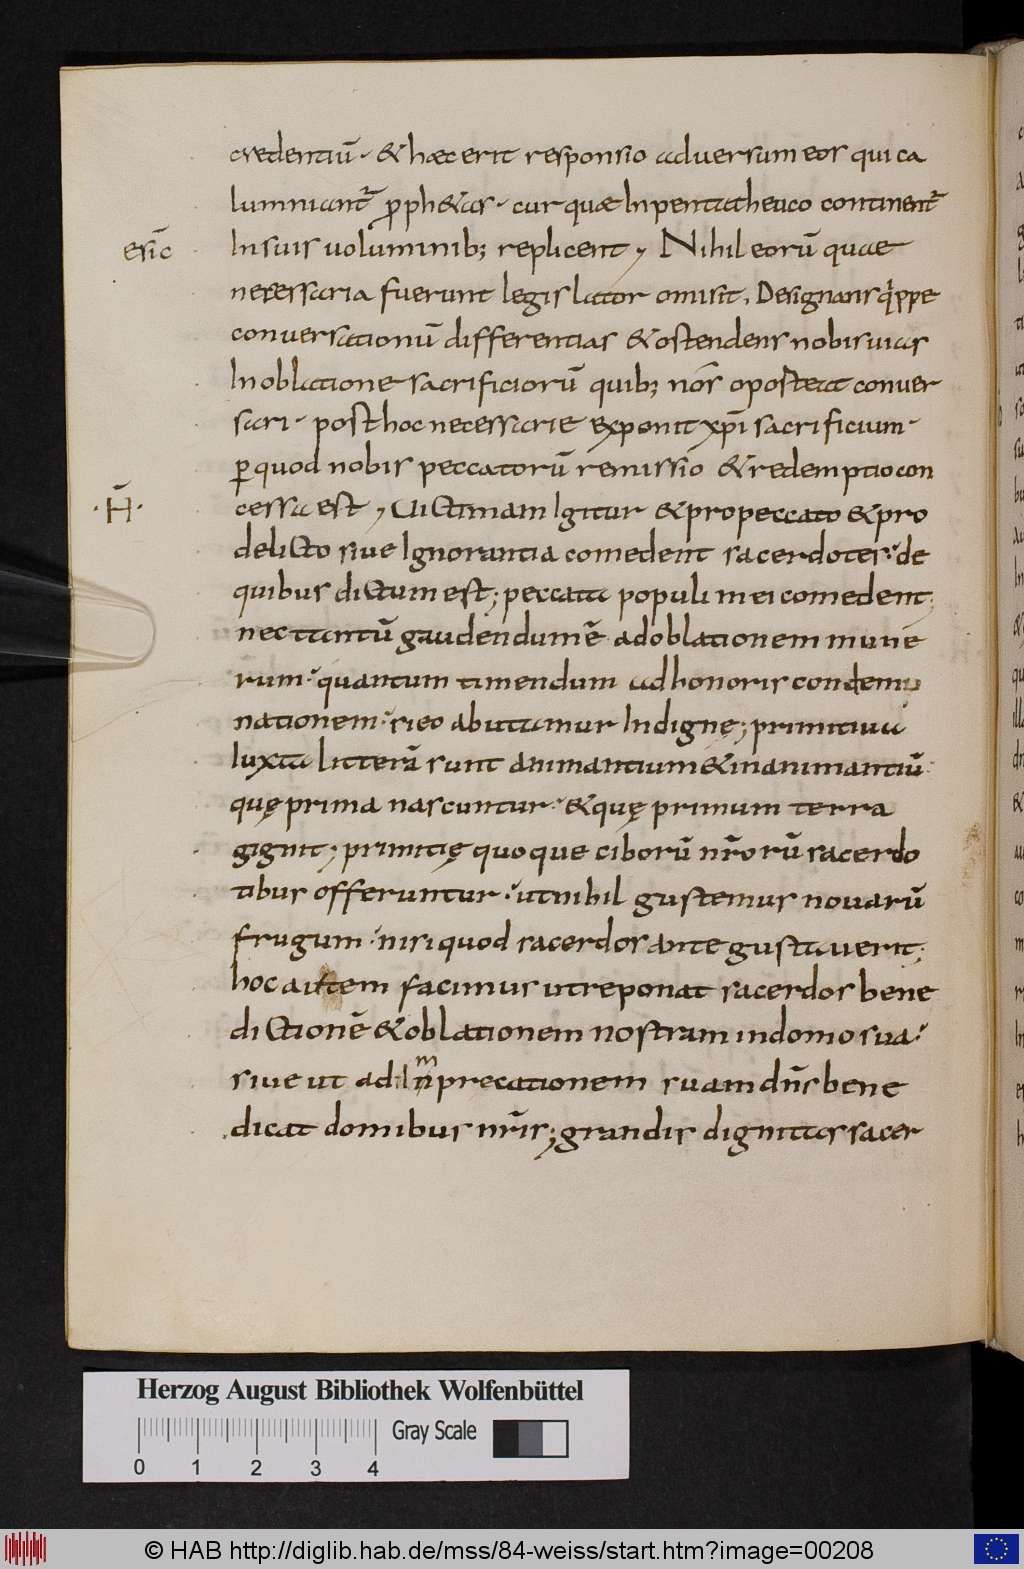 credentiū· & hæc erit responsio aduersum eos qui ca
lumniant᷑ ꝓph&as· cur quæ In pentatheuco continent᷑
esic̄
In suis uoluminib; replicent, Nihil eorū quae
necessaria fuerunt legislator omisit, Designans q͛ppe
conuersationū differentias & ostendens nobis uias
In oblatione sacrificiorū quib; nōs oposteat conuer
sari· post hoc necessarie exponit xp̄i sacrificium·
ꝑ quod nobis peccatorū remissio & redemptio con
·H̄·
cessa est, Uictimam Igitur & pro peccato & pro
delicto siue Ignorantia comedent sacerdotes·' de
quibus dictum est; peccata populi mei comedent;
nec tantū gaudendum ē ad oblationem mune
rum·' quantum timendum ad honoris condemp
nationem·' si eo abutamur Indignę; primitiua
Iuxta litterā sunt animantium & inanimantiū·
quę prima nascuntur·' & quę primum terra
gignit; primitię quoque ciborū nr̄orū sacerdo
tibus offeruntur·' ut nihil gustemus nouarū
frugum·' nisi quod sacerdos ante gustauerit;
hoc autem facimus ut reponat sacerdos bene
dictionē & oblationem nostram in domo sua·'
siue ut ad Inp̄recationem suam dn̄s bene
dicat domibus nr̄is; grandis dignitas sacer
Herzog August Bibliothek Wolfenbüttel
Gray Scale
0 1 2 3 4
© HAB http://diglib.hab.de/mss/84-weiss/start.htm?image=00208